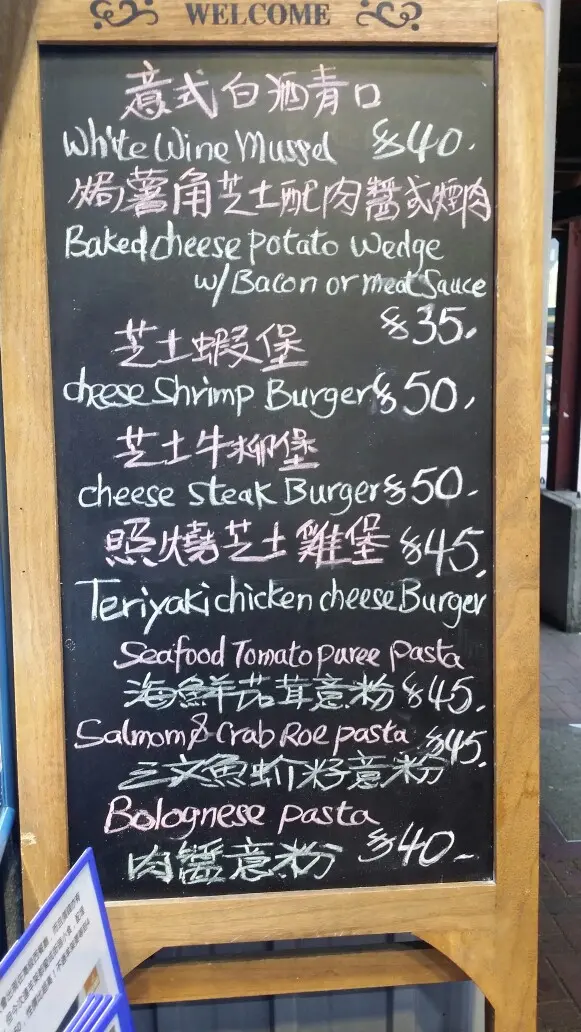 WELCOME
意式白酒青口
White Wine Mussel $40.
焗薯角芝士配肉醬或煙肉
Baked cheese potato wedge
w/Bacon or meat Sauce
$35.
芝士蝦堡
cheese Shrimp Burger $50.
芝士牛柳堡
cheese Steak Burger $50.
照燒芝士雞堡 $45.
Teriyaki chicken cheese Burger
Seafood Tomato puree pasta
海鮮茄茸意粉 $45.
Salmom & Crab Roe pasta $45.
三文魚蚧籽意粉
Bolognese pasta
肉醬意粉 $40.-